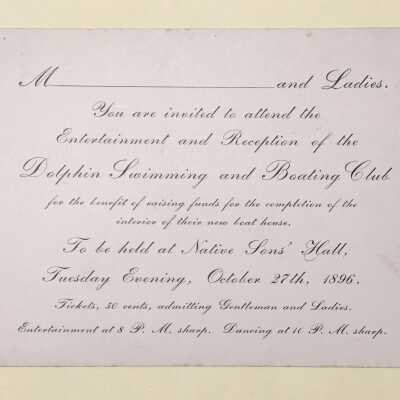 M and Ladies.
You are invited to attend the
Entertainment and Reception of the
Dolphin Swimming and Boating Club
for the benefit of raising funds for the completion of the
interior of their new boat house.
To be held at Native Sons' Hall,
Tuesday Evening, October 27th, 1896.
Tickets, 50 cents, admitting Gentleman and Ladies.
Entertainment at 8 P. M. sharp. Dancing at 10 P. M. sharp.